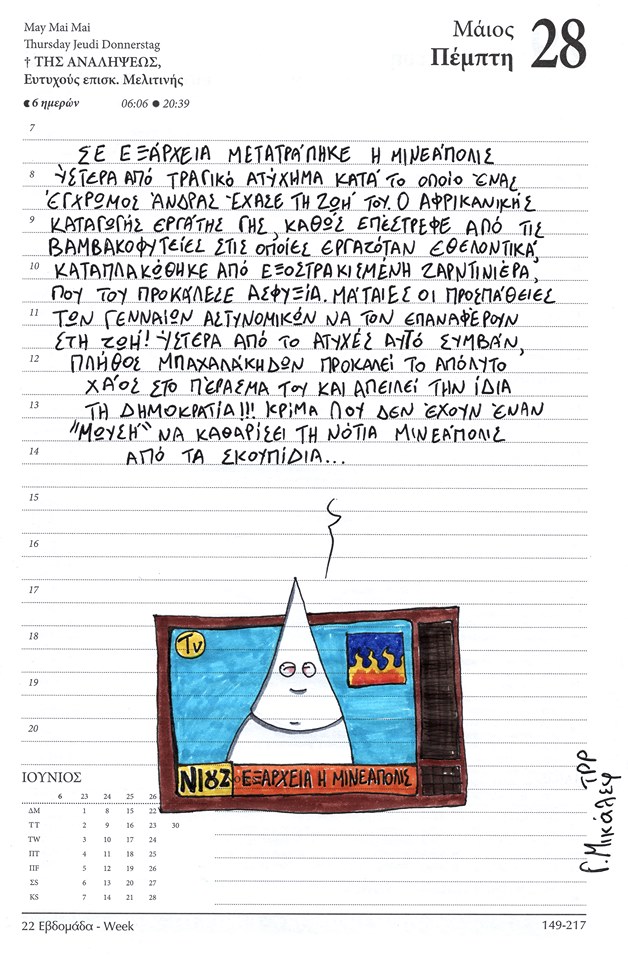 May Mai Mai
Thursday Jeudi Donnerstag
† ΤΗΣ ΑΝΑΛΗΨΕΩΣ,
Ευτυχούς επισκ. Μελιτινής
6 ημερών 06:06 ● 20:39
Μάιος
Πέμπτη
28
7
ΣΕ ΕΞΆΡΧΕΙΑ ΜΕΤΑΤΡΆΠΗΚΕ Η ΜΙΝΕΆΠΟΛΙΣ
8 ΎΣΤΕΡΑ ΑΠΌ ΤΡΑΓΙΚΌ ΑΤΎΧΗΜΑ ΚΑΤΆ ΤΟ ΟΠΟΊΟ ΈΝΑΣ
ΈΓΧΡΩΜΟΣ ΆΝΔΡΑΣ ΈΧΑΣΕ ΤΗ ΖΩΉ ΤΟΥ. Ο ΑΦΡΙΚΑΝΙΚΉΣ
9 ΚΑΤΑΓΩΓΉΣ ΕΡΓΆΤΗΣ ΓΗΣ, ΚΑΘΏΣ ΕΠΈΣΤΡΕΦΕ ΑΠΌ ΤΙΣ
ΒΑΜΒΑΚΟΦΥΤΕΊΕΣ ΣΤΙΣ ΟΠΟΊΕΣ ΕΡΓΑΖΌΤΑΝ ΕΘΕΛΟΝΤΙΚΆ,
10 ΚΑΤΑΠΛΑΚΏΘΗΚΕ ΑΠΌ ΕΞΟΣΤΡΑΚΙΣΜΈΝΗ ΖΑΡΝΤΙΝΙΈΡΑ,
ΠΟΥ ΤΟΥ ΠΡΟΚΆΛΕΣΕ ΑΣΦΥΞΊΑ. ΜΆΤΑΙΕΣ ΟΙ ΠΡΟΣΠΆΘΕΙΕΣ
11 ΤΩΝ ΓΕΝΝΑΊΩΝ ΑΣΤΥΝΟΜΙΚΏΝ ΝΑ ΤΟΝ ΕΠΑΝΑΦΈΡΟΥΝ
ΣΤΗ ΖΩΉ! ΎΣΤΕΡΑ ΑΠΌ ΤΟ ΑΤΥΧΈΣ ΑΥΤΌ ΣΥΜΒΆΝ,
12 ΠΛΉΘΟΣ ΜΠΑΧΑΛΆΚΗΔΩΝ ΠΡΟΚΑΛΕΊ ΤΟ ΑΠΌΛΥΤΟ
ΧΆΟΣ ΣΤΟ ΠΈΡΑΣΜΑ ΤΟΥ ΚΑΙ ΑΠΕΙΛΕΊ ΤΗΝ ΊΔΙΑ
13 ΤΗ ΔΗΜΟΚΡΑΤΊΑ!!! ΚΡΊΜΑ ΠΟΥ ΔΕΝ ΈΧΟΥΝ ΈΝΑΝ
"ΜΩΥΣΉ" ΝΑ ΚΑΘΑΡΊΣΕΙ ΤΗ ΝΌΤΙΑ ΜΙΝΕΆΠΟΛΙΣ
14 ΑΠΌ ΤΑ ΣΚΟΥΠΊΔΙΑ...
15
16
17
18
19
20
TV
ΝΙΟΥΖ ΕΞΑΡΧΕΙΑ Η ΜΙΝΕΑΠΟΛΙΣ
Γ. Μικάλεφ
ΤΡΡ
ΙΟΥΝΙΟΣ
6 23 24 25 26
ΔΜ 1 8 15 22
ΤΤ 2 9 16 23 30
TW 3 10 17 24
ΠΤ 4 11 18 25
ΠF 5 12 19 26
ΣS 6 13 20 27
KS 7 14 21 28
22 Εβδομάδα - Week
149-217